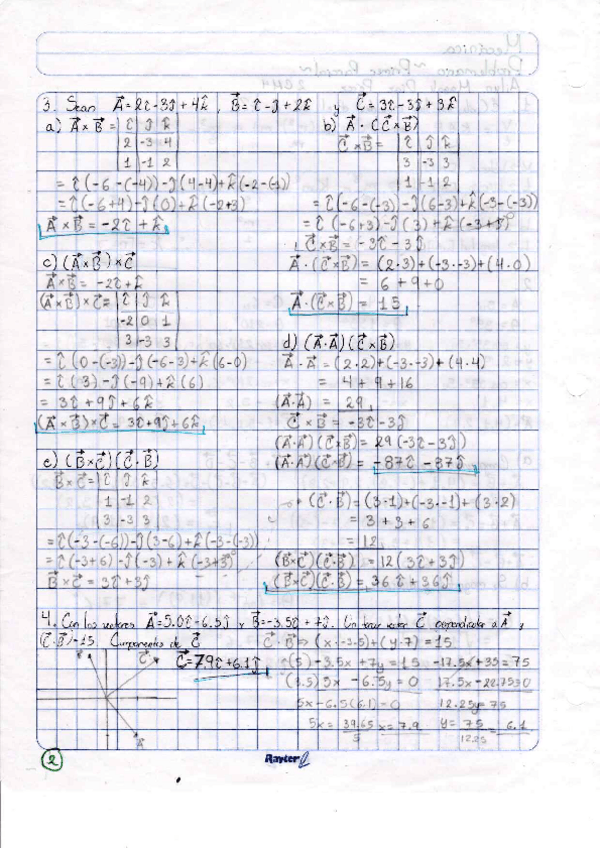 3. Sean A⃗=2î-3ĵ+4k̂, B⃗=î-ĵ+2k̂ y C⃗=3î-3ĵ+3k̂
a) A⃗×B⃗ = | î ĵ k̂ |
2 -3 4
1 -1 2
= î(-6-(-4))-ĵ(4-4)+k̂(-2-(-3))
= î(-6+4)-ĵ(0)+k̂(-2+3)
A⃗×B⃗ = -2î+k̂
b) A⃗·(C⃗×B⃗)
C⃗×B⃗ = | î ĵ k̂ |
3 -3 3
1 -1 2
= î(-6-(-3))-ĵ(6-3)+k̂(-3-(-3))
= î(-6+3)-ĵ(3)+k̂(-3+3)⁰
C⃗×B⃗ = -3î-3ĵ
A⃗·(C⃗×B⃗) = (2·3)+(-3·-3)+(4·0)
= 6+9+0
A⃗·(C⃗×B⃗) = 15
c) (A⃗×B⃗)×C⃗
A⃗×B⃗ = -2î+k̂
(A⃗×B⃗)×C⃗ = | î ĵ k̂ |
-2 0 1
3 -3 3
= î(0-(-3))-ĵ(-6-3)+k̂(6-0)
= î(3)-ĵ(-9)+k̂(6)
= 3î+9ĵ+6k̂
(A⃗×B⃗)×C⃗ = 3î+9ĵ+6k̂
d) (A⃗·A⃗)(C⃗×B⃗)
A⃗·A⃗ = (2·2)+(-3·-3)+(4·4)
= 4+9+16
(A⃗·A⃗) = 29
C⃗×B⃗ = -3î-3ĵ
(A⃗·A⃗)(C⃗×B⃗) = 29(-3î-3ĵ)
(A⃗·A⃗)(C⃗×B⃗) = -87î-87ĵ
e) (B⃗×C⃗)(C⃗·B⃗)
B⃗×C⃗ = | î ĵ k̂ |
1 -1 2
3 -3 3
= î(-3-(-6))-ĵ(3-6)+k̂(-3-(-3))
= î(-3+6)-ĵ(-3)+k̂(-3+3)⁰
B⃗×C⃗ = 3î+3ĵ
(C⃗·B⃗) = (3·1)+(-3·-1)+(3·2)
= 3+3+6
= 12
(B⃗×C⃗)(C⃗·B⃗) = 12(3î+3ĵ)
(B⃗×C⃗)(C⃗·B⃗) = 36î+36ĵ
4. Con los vectores A⃗=5.0î-6.5ĵ y B⃗=-3.5î+7ĵ. Un tercer vector C⃗ perpendicular a A⃗ y
(C⃗·B⃗)=15 Componentes de C⃗
C⃗=7.9î+6.1ĵ
B⃗
C⃗
A⃗
C⃗·B⃗ ⇒ (x·-3.5)+(y·7)=15
(5)-3.5x+7y=15 -17.5x+35=75
(3.5)5x-6.5y=0 17.5x-22.75=0
5x-6.5(6.1)=0 12.25y=75
5x= 39.65/5 x=7.9 y= 75/12.25 = 6.1
2
Rayter